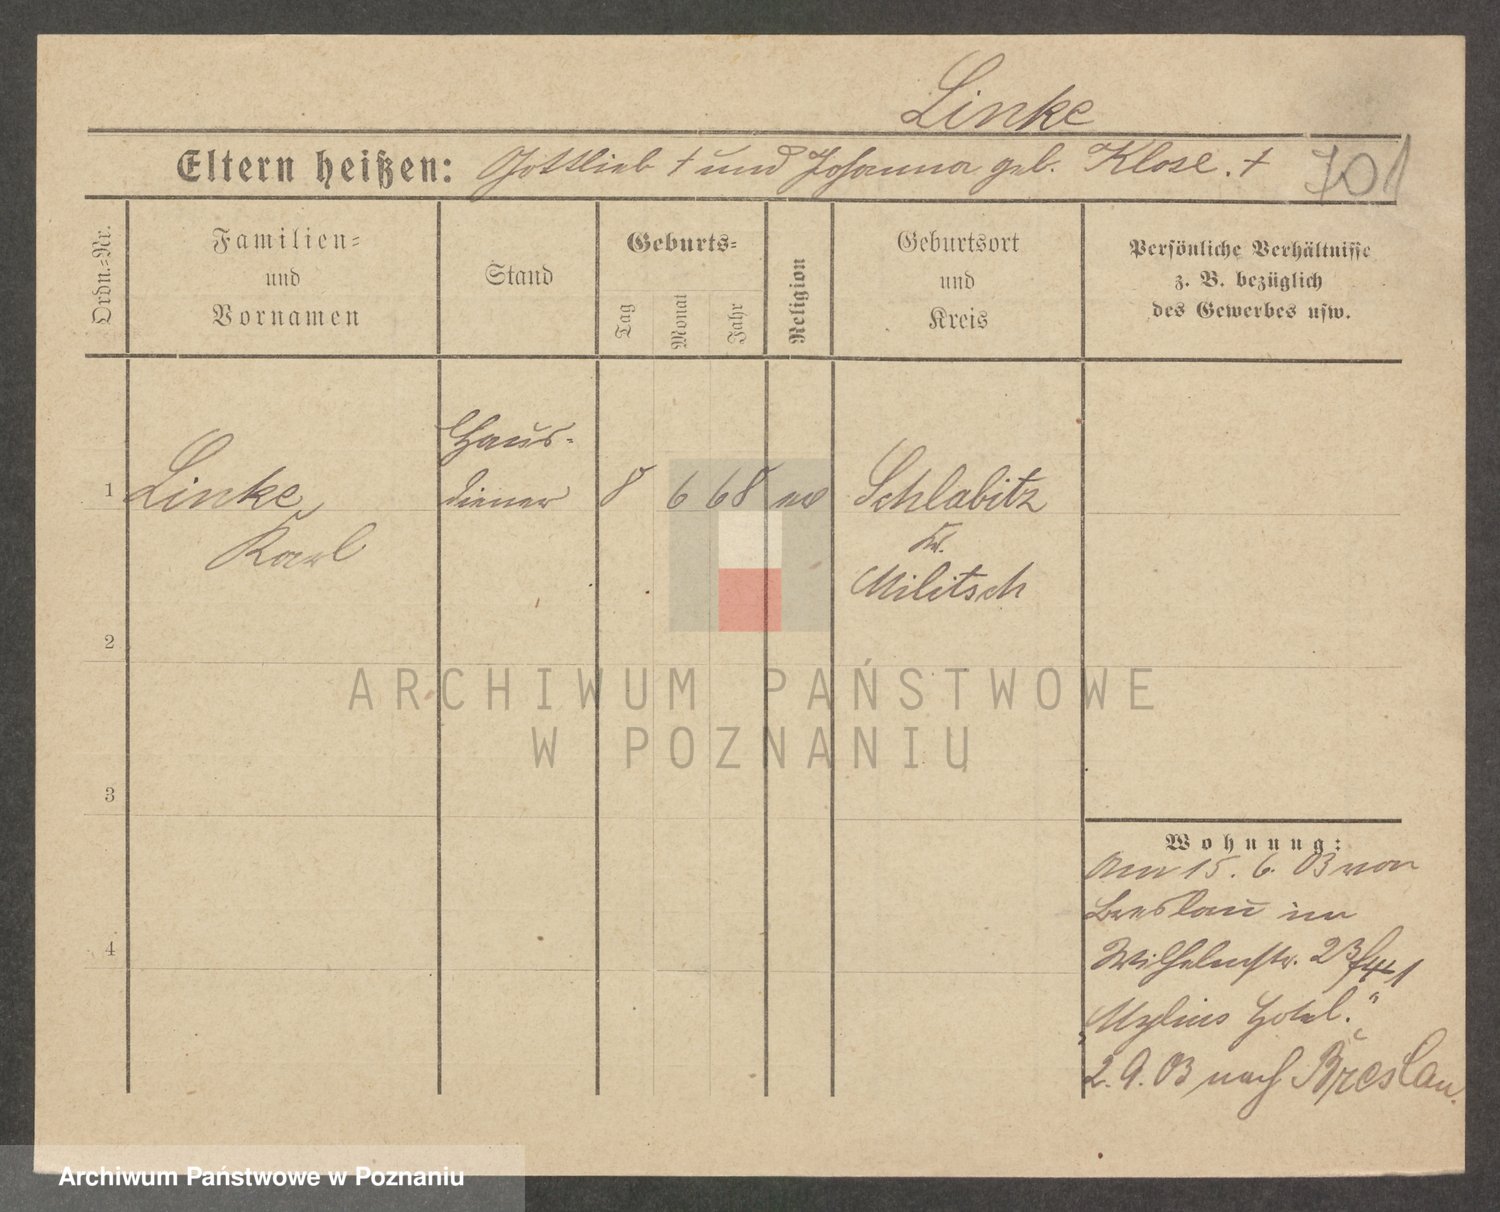 Linke
Eltern heißen: Gottlieb † und Johanna geb. Klose. †
701
Ordn.=Nr.
Familien=
und
Vornamen
Stand
Geburts=
Tag
Monat
Jahr
Religion
Geburtsort
und
Kreis
Persönliche Verhältnisse
z. B. bezüglich
des Gewerbes usw.
1
Linke,
Karl
Haus-
diener
8 6 68 ev
Schlabitz
Kr.
Militsch
2
3
4
Wohnung:
Am 15. 6. 03 von
Breslau in
Wilhelmstr. 23
„Mylius Hotel."
2. 9. 03 nach Breslau.
ARCHIWUM PAŃSTWOWE
W POZNANIU
Archiwum Państwowe w Poznaniu